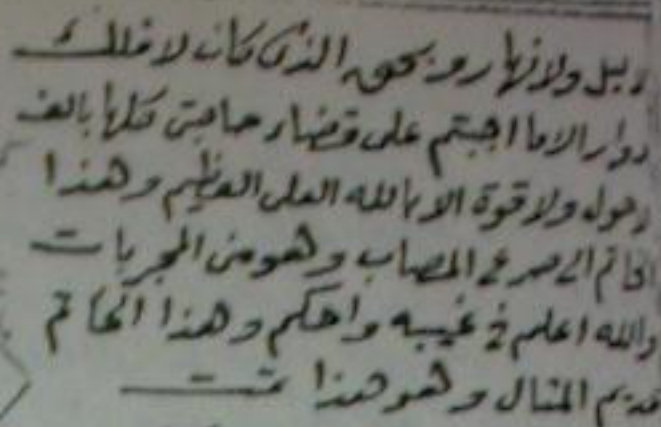 ليل ولا نهار وبحق الذى كان لا فلك
دوار الا ما اجبتم على قضاء حاجتى كلها بالف
لا حول ولا قوة الا بالله العلى العظيم وهذا
الخاتم الى صرع المصاب وهو من المجربات
والله اعلم في غيبه واحكم وهذا الخاتم
عديم المثال وهو هذا تمت